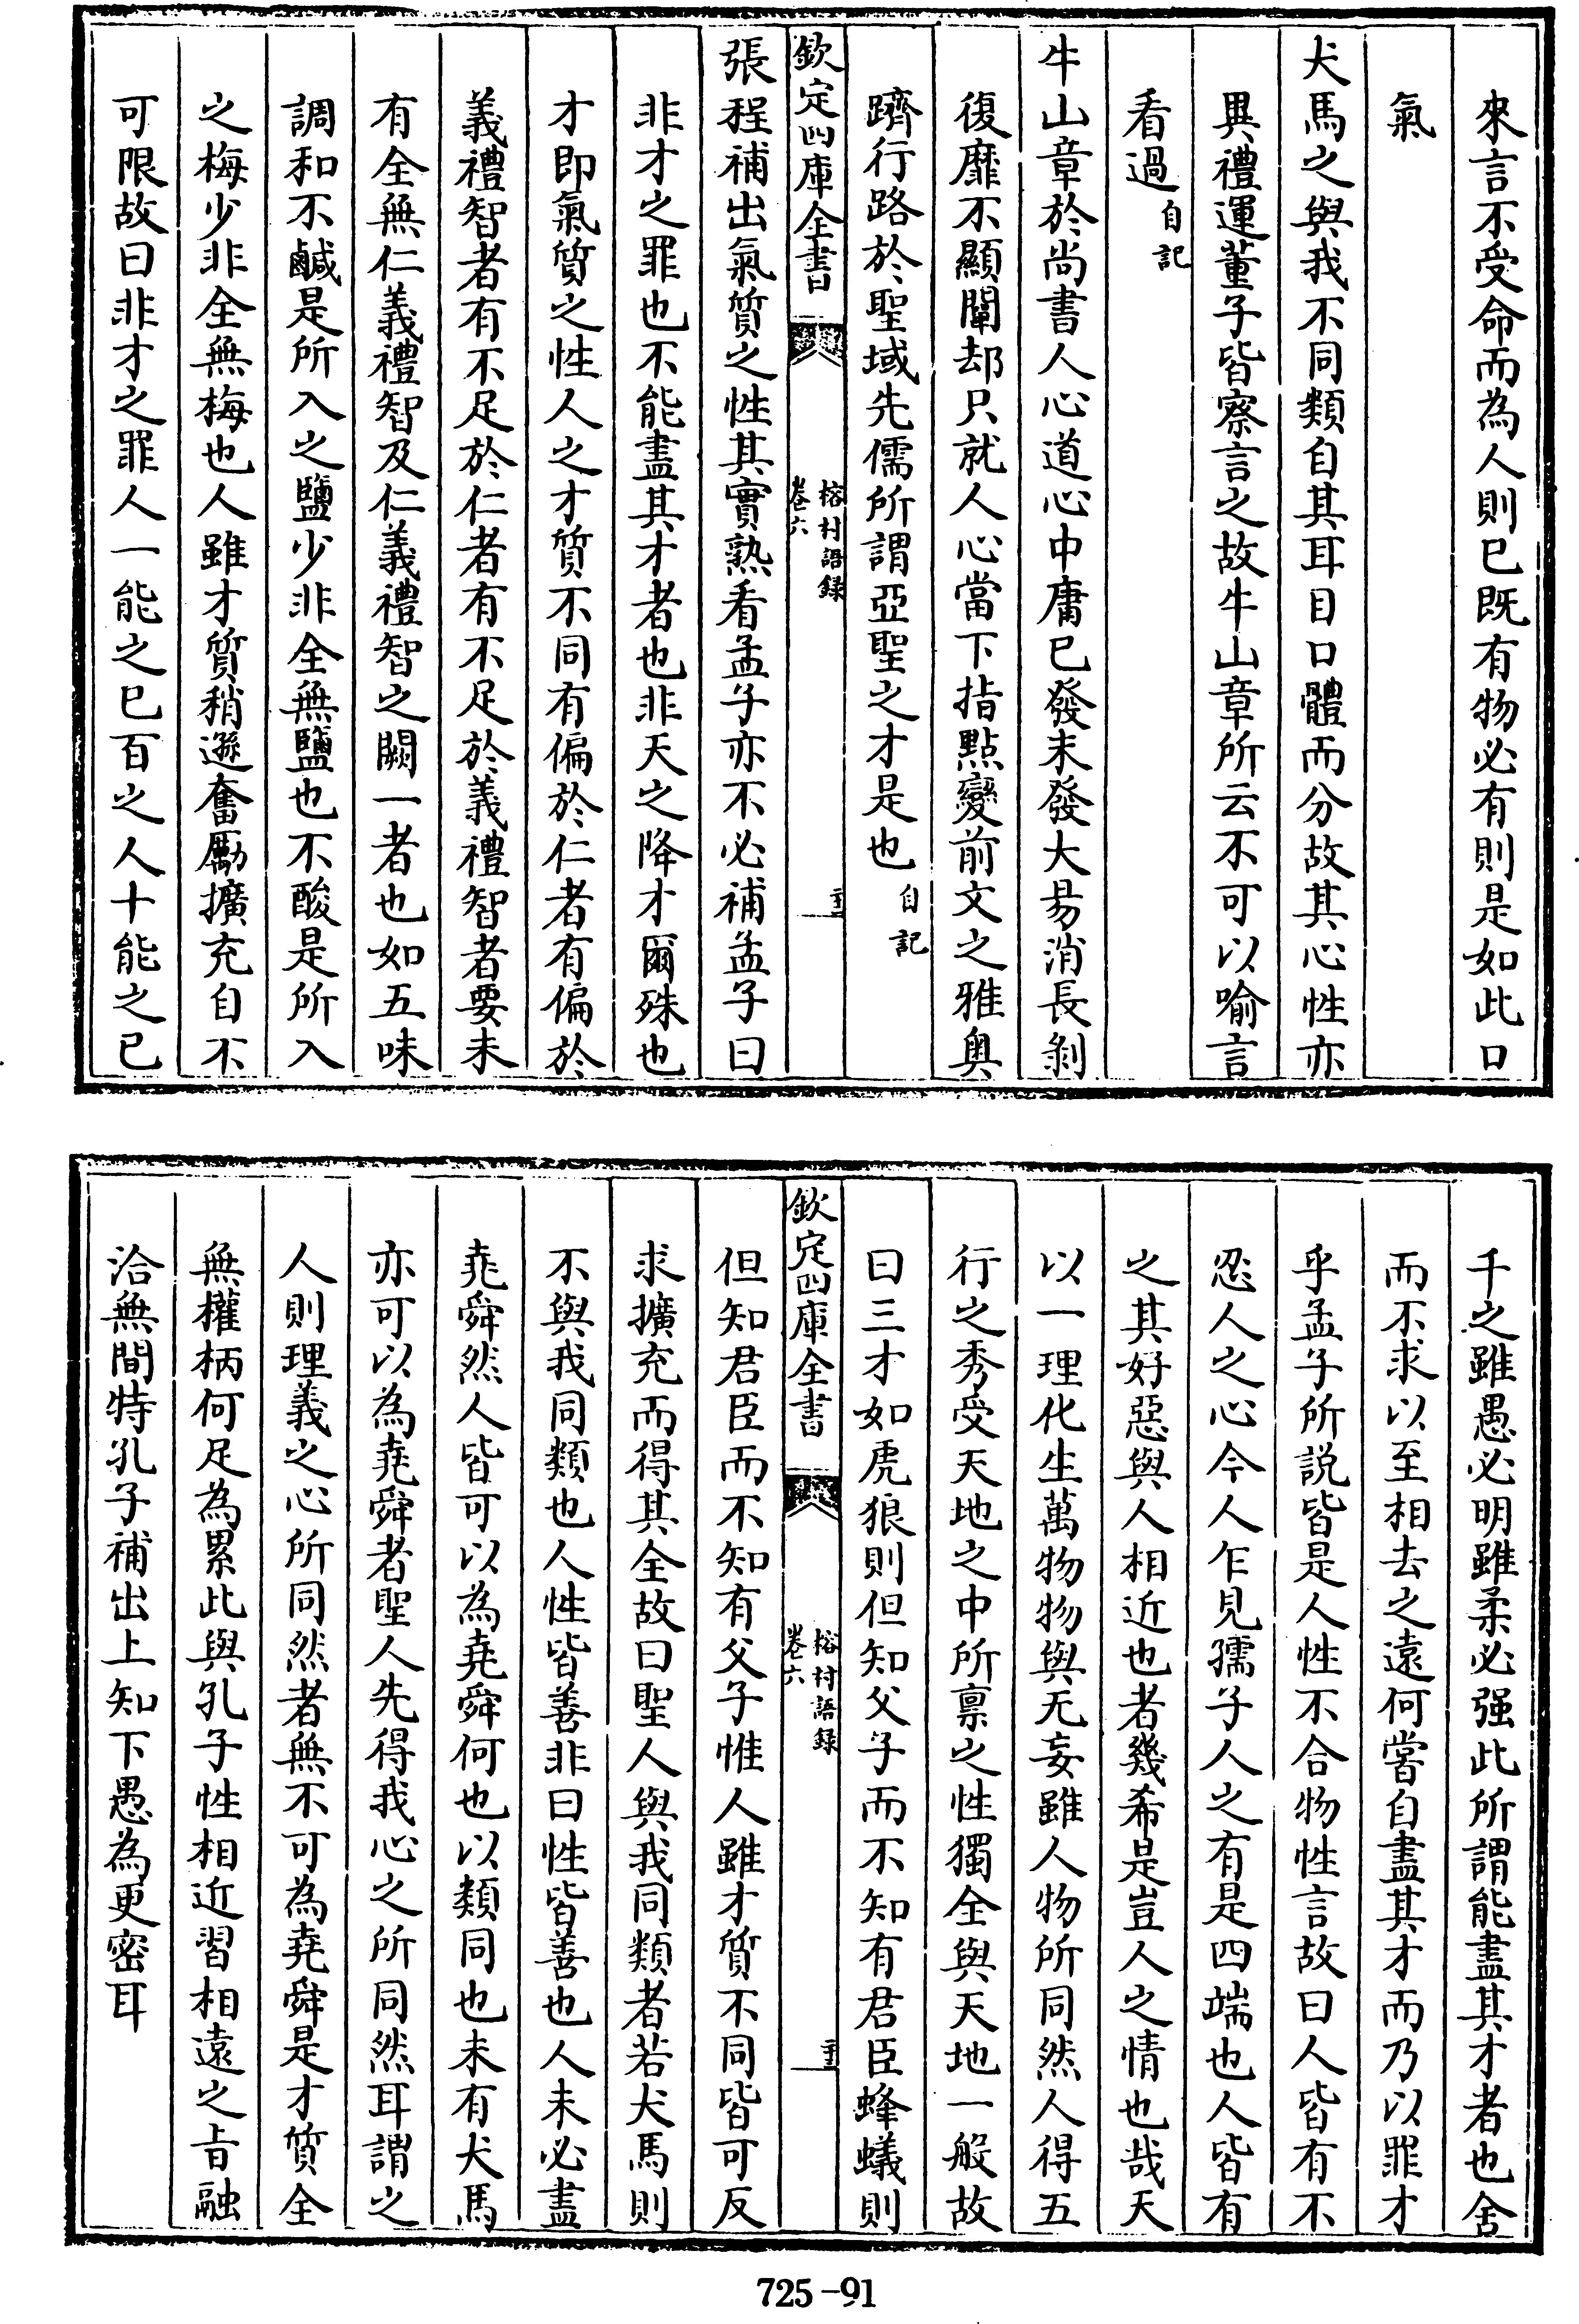 來言不受命而為人則已既有物必有則是如此口
氣
犬馬之與我不同類自其耳目口體而分故其心性亦
異禮運董子皆察言之故牛山章所云不可以喻言
看過自記
牛山章於尚書人心道心中庸已發未發大易消長剝
復靡不顯闡却只就人心當下指點變前文之雅奥
躋行路於聖域先儒所謂亞聖之才是也自記
欽定四庫全書
榕村語錄
卷六
張程補出氣質之性其實熟看孟子亦不必補孟子曰
非才之罪也不能盡其才者也非天之降才爾殊也
才即氣質之性人之才質不同有偏於仁者有偏於
義禮智者有不足於仁者有不足於義禮智者要未
有全無仁義禮智及仁義禮智之闕一者也如五味
調和不鹹是所入之鹽少非全無鹽也不酸是所入
之梅少非全無梅也人雖才質稍遜奮勵擴充自不
可限故曰非才之罪人一能之已百之人十能之已
千之雖愚必明雖柔必强此所謂能盡其才者也舍
而不求以至相去之遠何嘗自盡其才而乃以罪才
乎孟子所説皆是人性不合物性言故曰人皆有不
忍人之心今人乍見孺子人之有是四端也人皆有
之其好惡與人相近也者幾希是豈人之情也哉天
以一理化生萬物物與无妄雖人物所同然人得五
行之秀受天地之中所禀之性獨全與天地一般故
曰三才如虎狼則但知父子而不知有君臣蜂蟻則
欽定四庫全書
榕村語錄
卷六
但知君臣而不知有父子惟人雖才質不同皆可反
求擴充而得其全故曰聖人與我同類者若犬馬則
不與我同類也人性皆善非曰性皆善也人未必盡
堯舜然人皆可以為堯舜何也以類同也未有犬馬
亦可以為堯舜者聖人先得我心之所同然耳謂之
人則理義之心所同然者無不可為堯舜是才質全
無權柄何足為累此與孔子性相近習相遠之旨融
洽無間特孔子補出上知下愚為更密耳
725-91